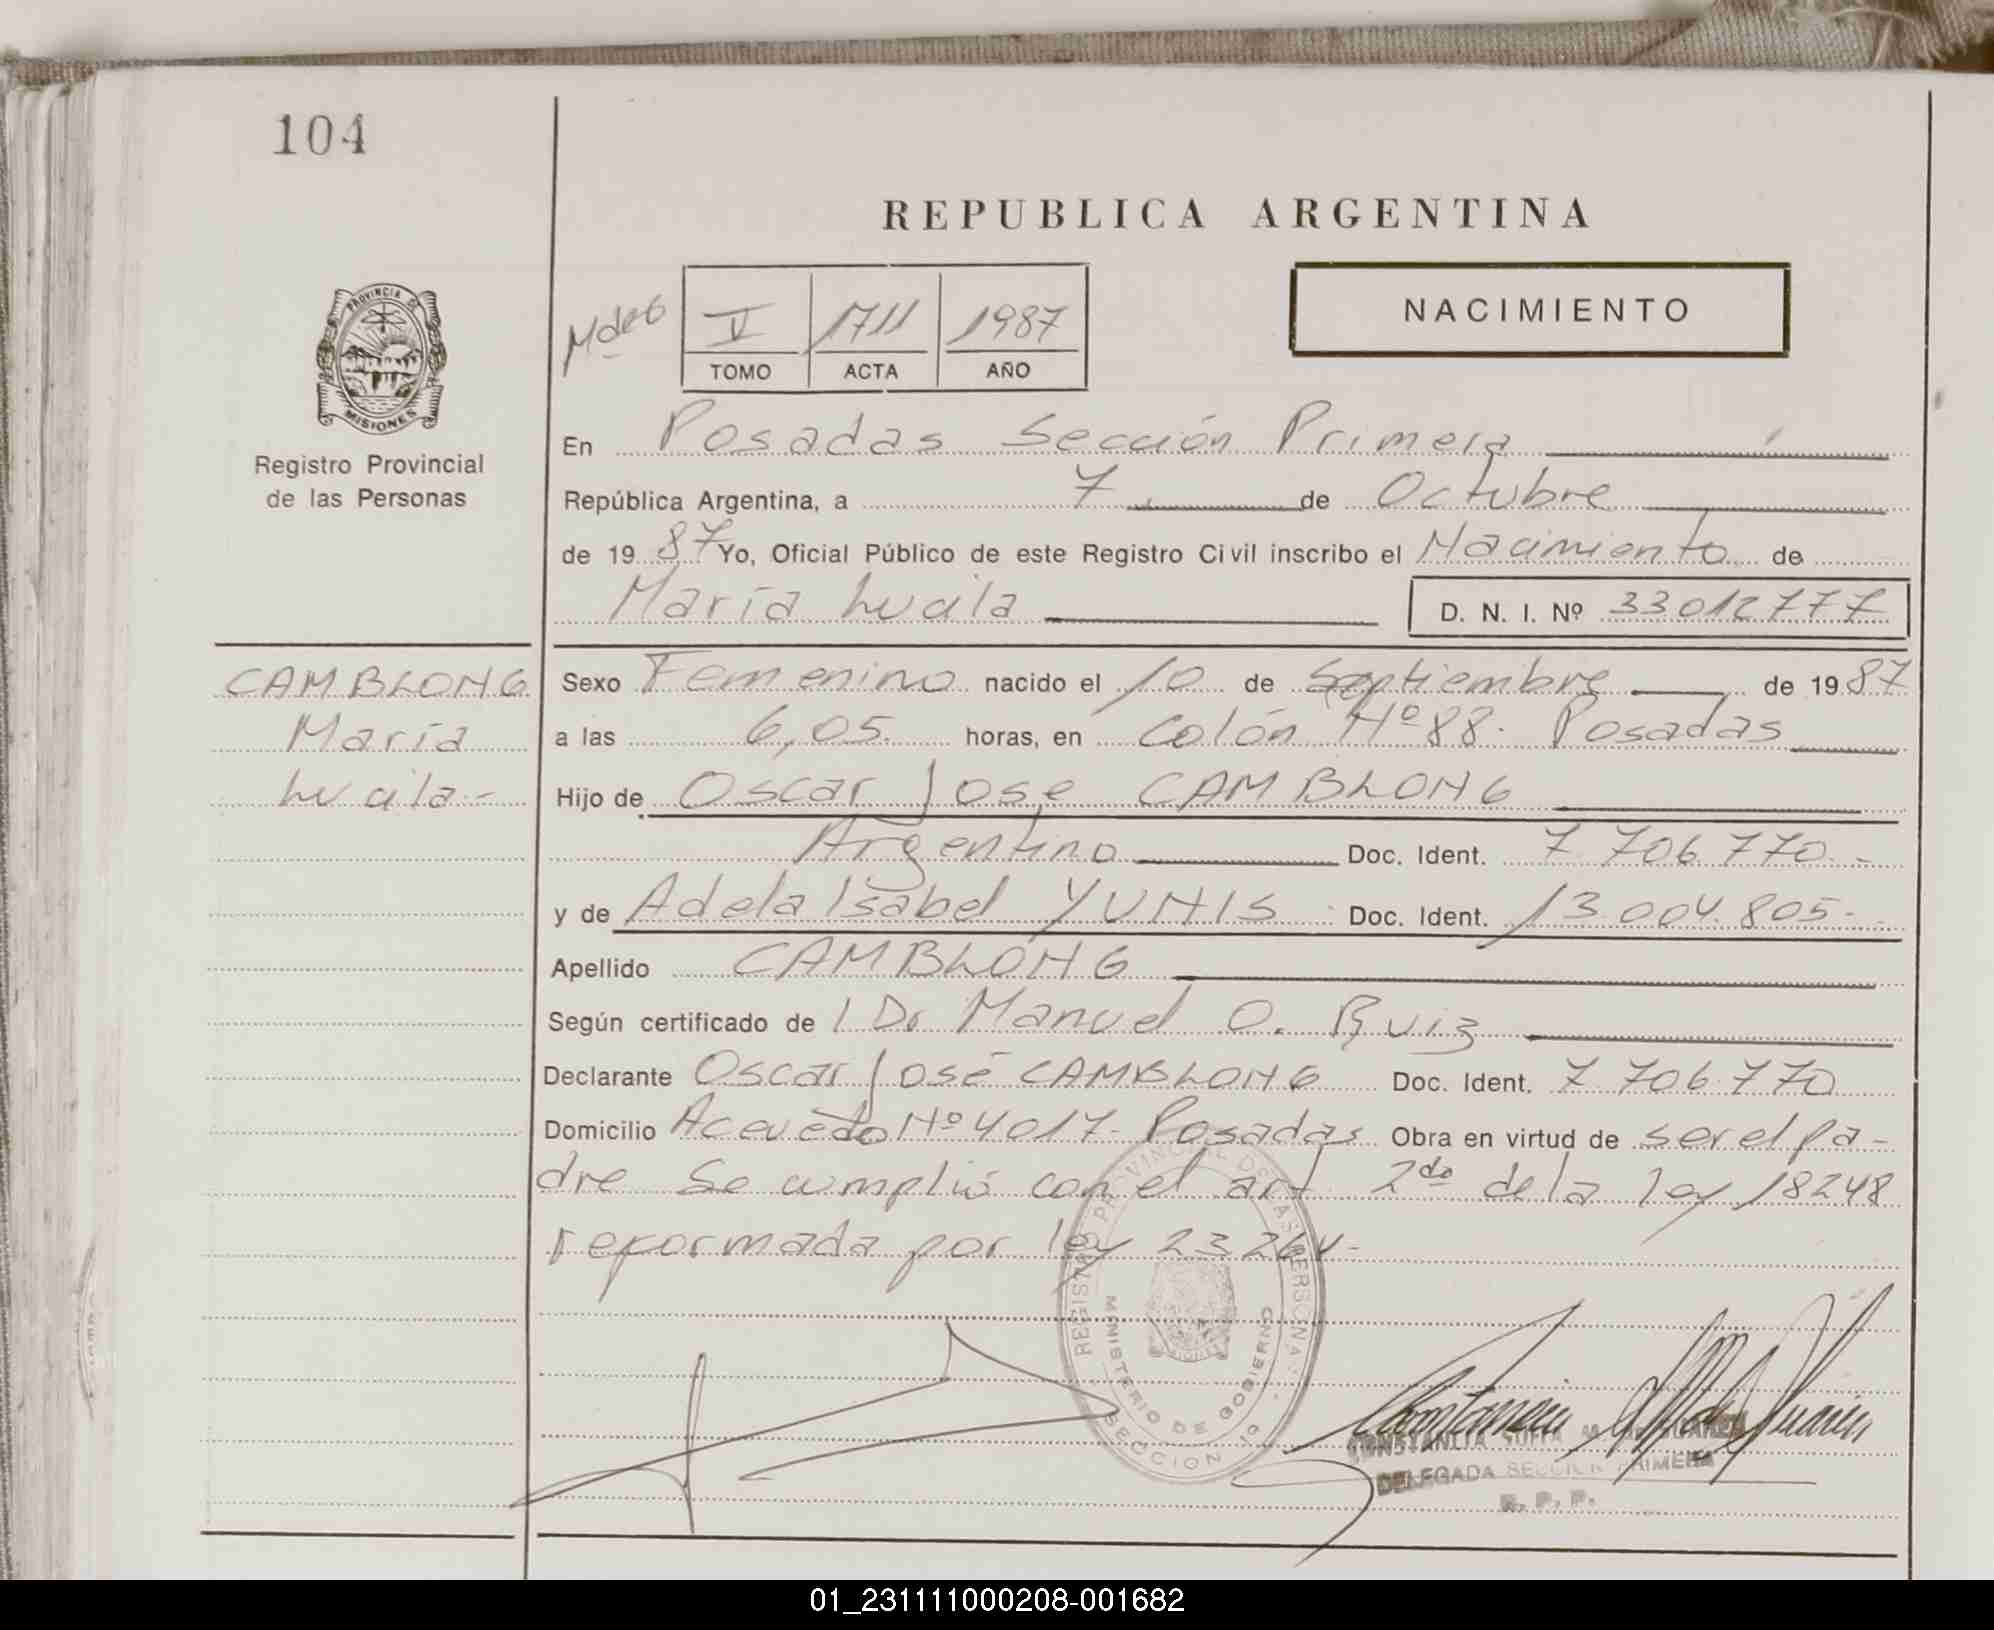 104
REPUBLICA ARGENTINA
NACIMIENTO
V 1711 1987
TOMO ACTA AÑO
PROVINCIA DE
MISIONES
Registro Provincial
de las Personas
En Posadas Sección Primera
República Argentina, a 7 de Octubre
de 1987 Yo, Oficial Público de este Registro Civil inscribo el Nacimiento de
María Lucila D. N. I. Nº 33012777
CAMBLONG
María
Lucila-
Sexo Femenino nacido el 10 de Septiembre de 1987
a las 6,05 horas, en Colón Nº 88. Posadas
Hijo de Oscar José CAMBLONG
Argentino Doc. Ident. 7 706 770.-
y de Adela Isabel YUNIS Doc. Ident. 13.004.805-
Apellido CAMBLONG
Según certificado de l Dr Manuel O. Ruiz
Declarante Oscar José CAMBLONG Doc. Ident. 7 706.770
Domicilio Acevedo Nº 4017- Posadas Obra en virtud de ser el pa-
dre Se cumplió con el art 2do de la ley 18248
reformada por ley 23264-
REGISTRO PROVINCIAL DE LAS PERSONAS
MINISTERIO DE GOBIERNO
SECCION 1º
MISIONES
DELEGADA SECCION PRIMERA
R. P. P.
01_231111000208-001682